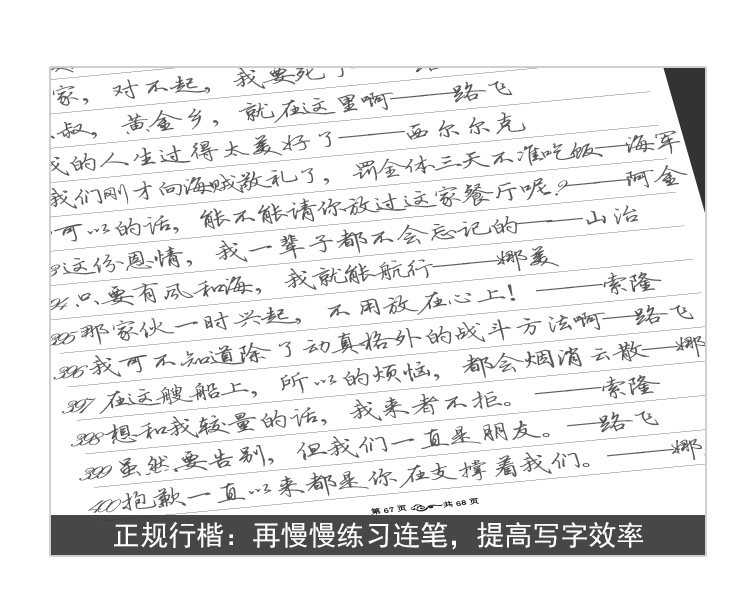 家，对不起，我要死了——路
叔，黄金乡，就在这里啊——路飞
我的人生过得太美好了——西尔尔克
我们刚才向海贼敬礼了，罚全体三天不准吃饭—海军
可以的话，能不能请你放过这家餐厅呢？——阿金
这份恩情，我一辈子都不会忘记的——山治
94只要有风和海，我就能航行——娜美
395那家伙一时兴起，不用放在心上！——索隆
396我可不知道除了动真格外的战斗方法啊—路飞
397在这艘船上，所以的烦恼，都会烟消云散——娜
398想和我较量的话，我来者不拒。——索隆
399虽然要告别，但我们一直是朋友。—路飞
400抱歉一直以来都是你在支撑着我们。——娜
第67页 共68页
正规行楷：再慢慢练习连笔，提高写字效率